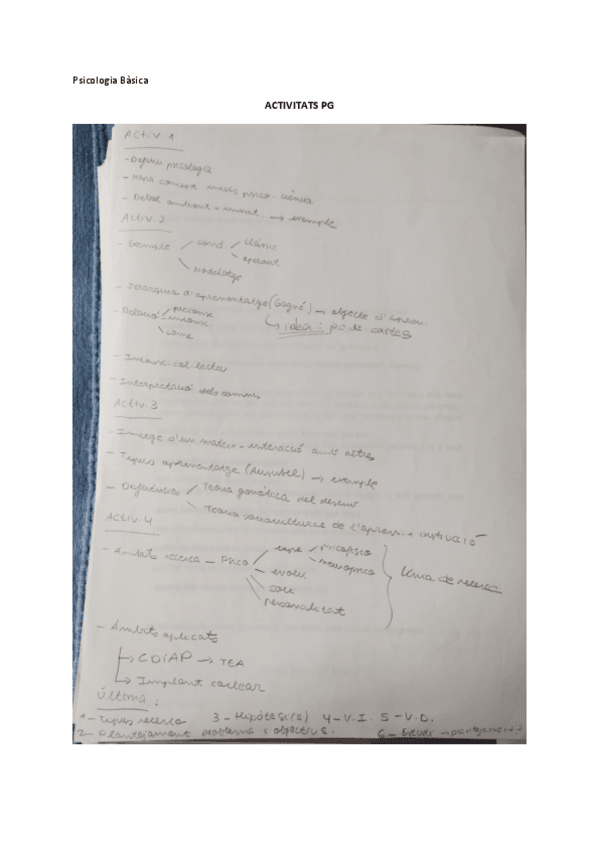 Psicologia Bàsica
ACTIVITATS PG
ACTIV. 1
- Definir psicologia
- Mapa concep. inicis psico. ciència
- Debat ambient - innat. → exemple
ACTIV. 2
- Exemple cond. clàssic
operant
Modelatge
- Jerarquia d'aprenentatge (Gagné) → objecte d'apren.
- Relació preconsc
inconsc
consc
idea: joc de cartes
- Inconsc. col·lectiu
- Interpretació dels somnis
ACTIV. 3
- Imatge d'un mateix - interacció amb altres
- Tipus aprenentatge (Ausubel) → exemple
- Diferències Teoria genètica del desenv
Teoria sociocultural de l'apren. + instrucció
ACTIV. 4
- Àmbits recerca - Psico expe psicofisio
neuropsico
evolu
soci
Personalitat
línia de recerca
- Àmbits aplicats
→ CDIAP → TEA
→ Implant coclear
Última:
1 - Tipus recerca 3 - Hipòtesi(s) 4 - V.I. 5 - V.D.
2 - Plantejament problema i objectius. 6 -